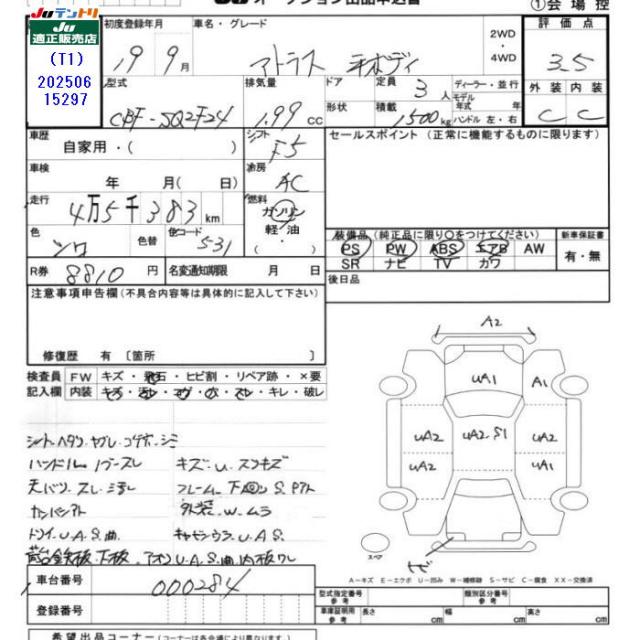 JUテントリ
JU適正販売店
(T1)
202506
15297
オークション出品申込書
①会場控
初度登録年月
19年9月
車名・グレード
アトラス
2WD
4WD
評価点
3.5
型式
CBF-SQ2F24
排気量
1.99 CC
ドア
形状
定員
3人
積載
1500kg
ディーラー・並行
モデル年式 年
ハンドル 左・右
外装 内装
C C
車歴
自家用・( )
シフト
F5
セールスポイント (正常に機能するものに限ります)
車検
年 月( 日)
冷房
AC
走行
4万5千383km
燃料
ガソリン
軽・油
色
シロ
色替
色コード
531
装備品 (純正品に限り○をつけてください)
PS PW ABS エアB AW
SR ナビ TV カワ
新車保証書
有・無
R券
8810円
名変通知期限 月 日
後日品
注意事項申告欄(不具合内容等は具体的に記入して下さい)
修復歴 有 〔箇所
検査員記入欄
FW キズ・飛石・ヒビ割・リペア跡・×要
内装 キズ・汚レ・コゲ・穴・スレ・キレ・破レ
シート・ヘタリ・ヤブレ・コゲ・シミ
ハンドル
キズ・U・スリキズ
天バリ・スレ
フレーム
外装・W・ムラ
U.A.S.曲
U.A.S
荷台鉄板・下板・アオリU.A.S.曲
A2
UA1
A1
UA2
UA2.S1
UA2
UA2
UA1
スペア
トビ
A-キズ E-エクボ U-凹み W-補修跡 S-サビ C-腐食 XX-交換済
車台番号
000284
登録番号
型式指定番号 参考
類別区分番号 参考
車庫証明用 参考
長さ cm
幅 cm
高さ cm
希望出品コーナー